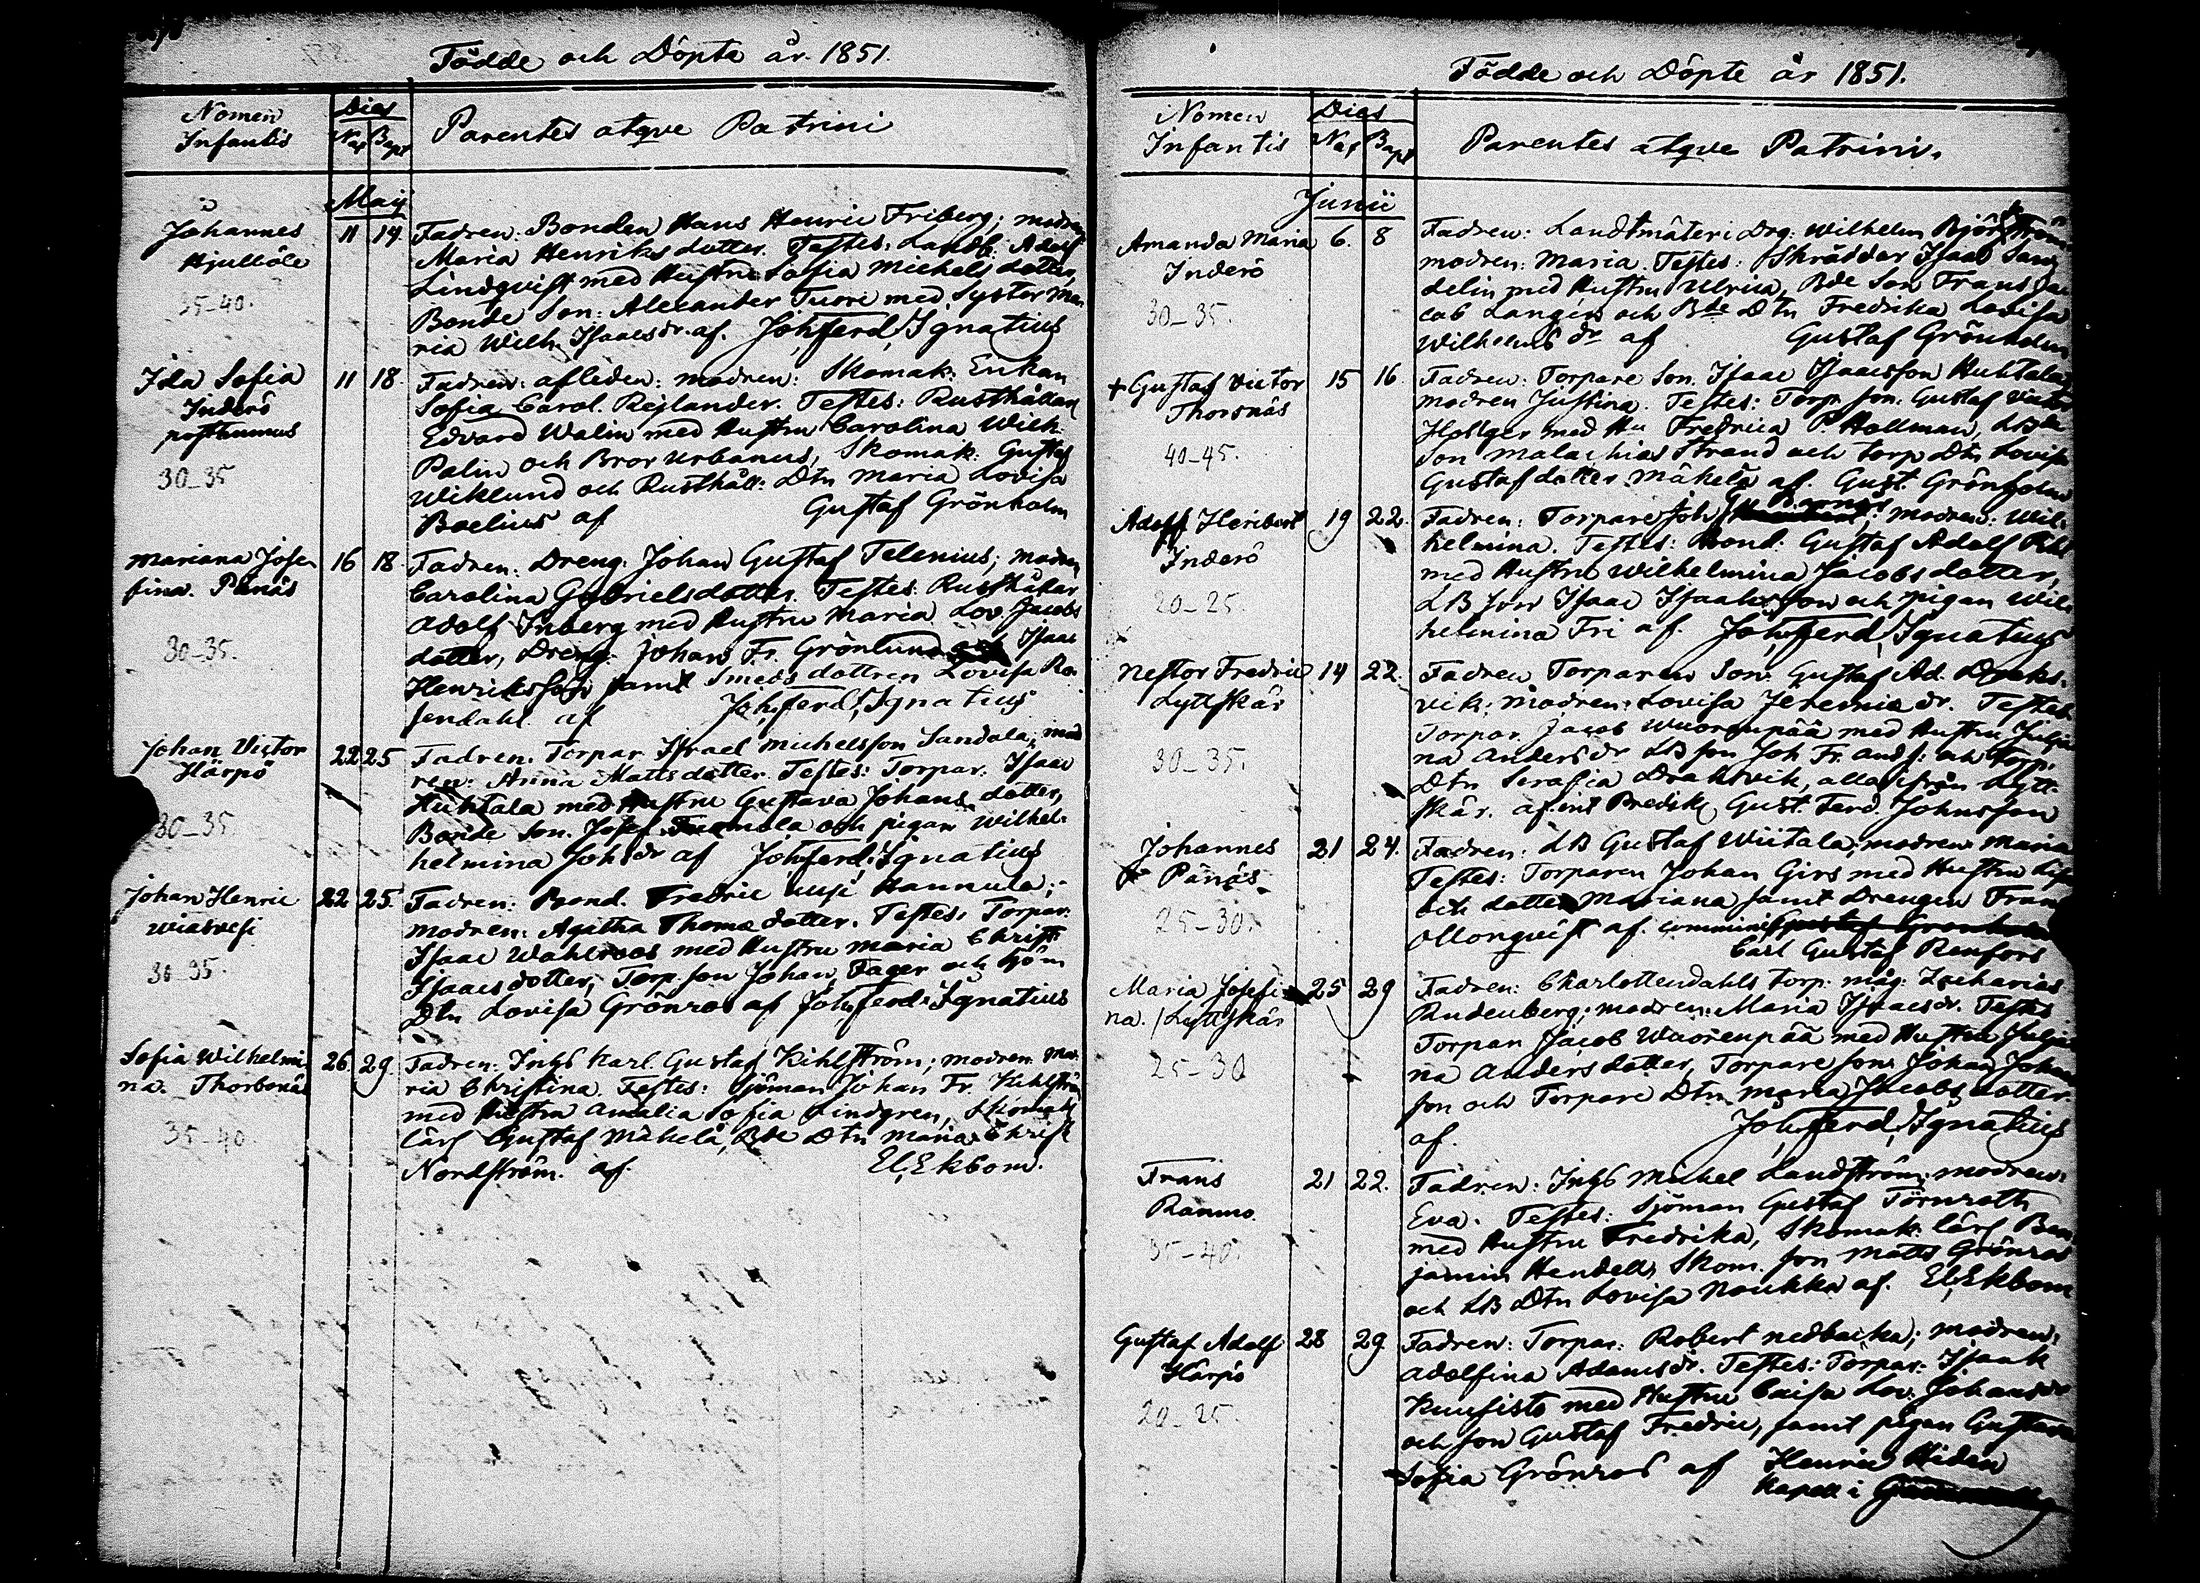 Födde och Döpte år 1851.
Nomen
Infantis
Dies
Nat Bapt
Parentes atqve Patrini
Maij
Johannes
Hjulböle
35-40.
11 14.
Fadren: Bonden Hans Henric Friberg; modren
Maria Henriksdotter. Testes: Landb. Adolf
Lindqvist med Hustru Sofia Michelsdotter,
Bonde Son: Alexander Tuori med Syster Ma
ria Wilh. Isaacsdr. af. Joh. Ferd. Ignatius
Ida Sofia
Inderö
posthumus
30-35
11 18.
Fadren: afleden: modren: Skomak: Enkan
Sofia Carol. Rejlander. Testes: Rusthållan
Edvard Walin med Hustru Carolina Wilh.
Palin och Bror Urbanus, Skomak: Gustaf
Wiklund och Rusthåll: Dtn Maria Lovisa
Boelius af Gustaf Grönholm
Mariana Jose
fina. Panäs
30-35.
16 18.
Fadren: Dreng. Johan Gustaf Telenius; modren
Carolina Gabrielsdotter. Testes: Rusthållar
Adolf Inberg med Hustru Maria Lov. Jacobs
dotter, Dreng: Johan Fr. Grönlund Isaac
Henriksson samt Smeds dottren Lovisa Ro
sendahl. af Joh. Ferd. Ignatius
Johan Victor
Härpö
30-35.
22 25
Fadren: Torpar. Israel Michelsson Sandala; mod
ren: Anna Mattsdotter. Testes: Torpar. Isaac
Huhtala med Hustru Gustava Johans dotter,
Bonde Son. Josef Tuomola och pigan Wilhel
helmina Johsdr af Joh. Ferd. Ignatius
Johan Henric
Wiasvesi
30-35.
22 25.
Fadren: Bond. Fredric Uusi Hannula;
modren: Agitha Thomædotter. Testes: Torpar.
Isaac Wahlroos med Hustru Maria Christ.
Isaacsdotter, Torp. son Johan Fager och
Dtn Lovisa Grönros af Joh. Ferd. Ignatius
Sofia Wilhelmi
na. Thorbonäs
35-40.
26. 29.
Fadren: Inhs Karl Gustaf Kihlström; modren Ma
ria Christina. Testes: Sjöman Johan Fr. Kihlström
med Hustru Amalia Sofia Lindgren, Skomak
Carl Gustaf Mäkelä, Bde Dtn Maria Christ
Nordström. af. El. Ekbom.
Födde och Döpte år 1851.
Nomen
Infantis
Dies
Nat Bapt
Parentes atqve Patrini.
Junii
Amanda Maria
Inderö
30-35.
6. 8
Fadren: Landtmäteri Drg: Wilhelm Björkström
modren: Maria. Testes: Skräddar Isaac San
delin med Hustru Ulrica, Bde Son Frans Ja
cob Langen och Bde Dtn Fredrika Lovisa
Wilhelms dr af Gustaf Grönholm
+ Gustaf Victor
Thorsnäs
40-45.
15 16.
Fadren: Torpare Son. Isaac Isaacsson Huhtala;
modren Justina. Testes: Torp. son: Gustaf Victor
Hollger med Hu Fredrica P. Hollman, LBde
Son Malachias Strand och torp Dtn Lovisa
Gustafdotter Mäkelä af. Gust. Grönholm
Adolf Heribert
Inderö
20-25.
19 22.
Fadren: Torpare Joh modren: Wil
helmina. Testes: Bond: Gustaf Adolf
med Hustru Wilhelmina Jacobsdotter,
LB son Isaac Isaaksson och pigan Wil
helmina Fri af. Joh. Ferd. Ignatius
Nestor Fredric
Lyttskär
30-35.
14 22.
Fadren Torparen Son. Gustaf Ad. Draks
vik; modren: Lovisa Jeremiædr. Testes
Torpar. Jacob Wuorenpää med Hustru Julia
na Andersdr LB son Joh. Fr. Ands. och torp.
Dtn Serafia Draksvik, alla ifrån Lytt
skär. af Predik. Gust. Ferd. Johnsson
Johannes
Panäs
25-30.
21 24.
Fadren: LB Gustaf Wiitala; modren Maria
Testes: Torparen Johan Girs med Hustru Lisa
och dotter Mariana samt Drengen Frans
Mongvist af. commin. Gustaf Grönholm
Carl Gustaf Renfors
Maria Josefi
na. / Lyttskär
25-30
25 29
Fadren: Charlottendahls torp: måg: Zacharias
Rudenberg; modren: Maria Isaacsdr. Testes
Torpan Jacob Wuorenpää med Hustru Julia
na Andersdotter, Torpare son: Johan Johans
son och Torpare Dtn Maria Jacobsdotter.
af. Joh. Ferd. Ignatius
Frans
Raumo.
35-40.
21 22.
Fadren: Inhs Michel Landström; modren:
Eva. Testes: Sjöman Gustaf Törnroth
med Hustru Fredrika, Skomak: Carl Ben
jamin Hendell, Skom. son Matts Grönros
och LB Dtn Lovisa Noukka af. El. Ekbom
Gustaf Adolf
Härpö
20-25.
28 29.
Fadren: Torpar: Robert Nedbacka; modren:
Adolfina Adamsdr. Testes: Torpar: Isaak
Kuusisto med Hustru Caisa Lov. Johansdr
och son Gustaf Fredric, samt pigan Gustava
Sofia Grönros af Henric Hiden
Kapell i